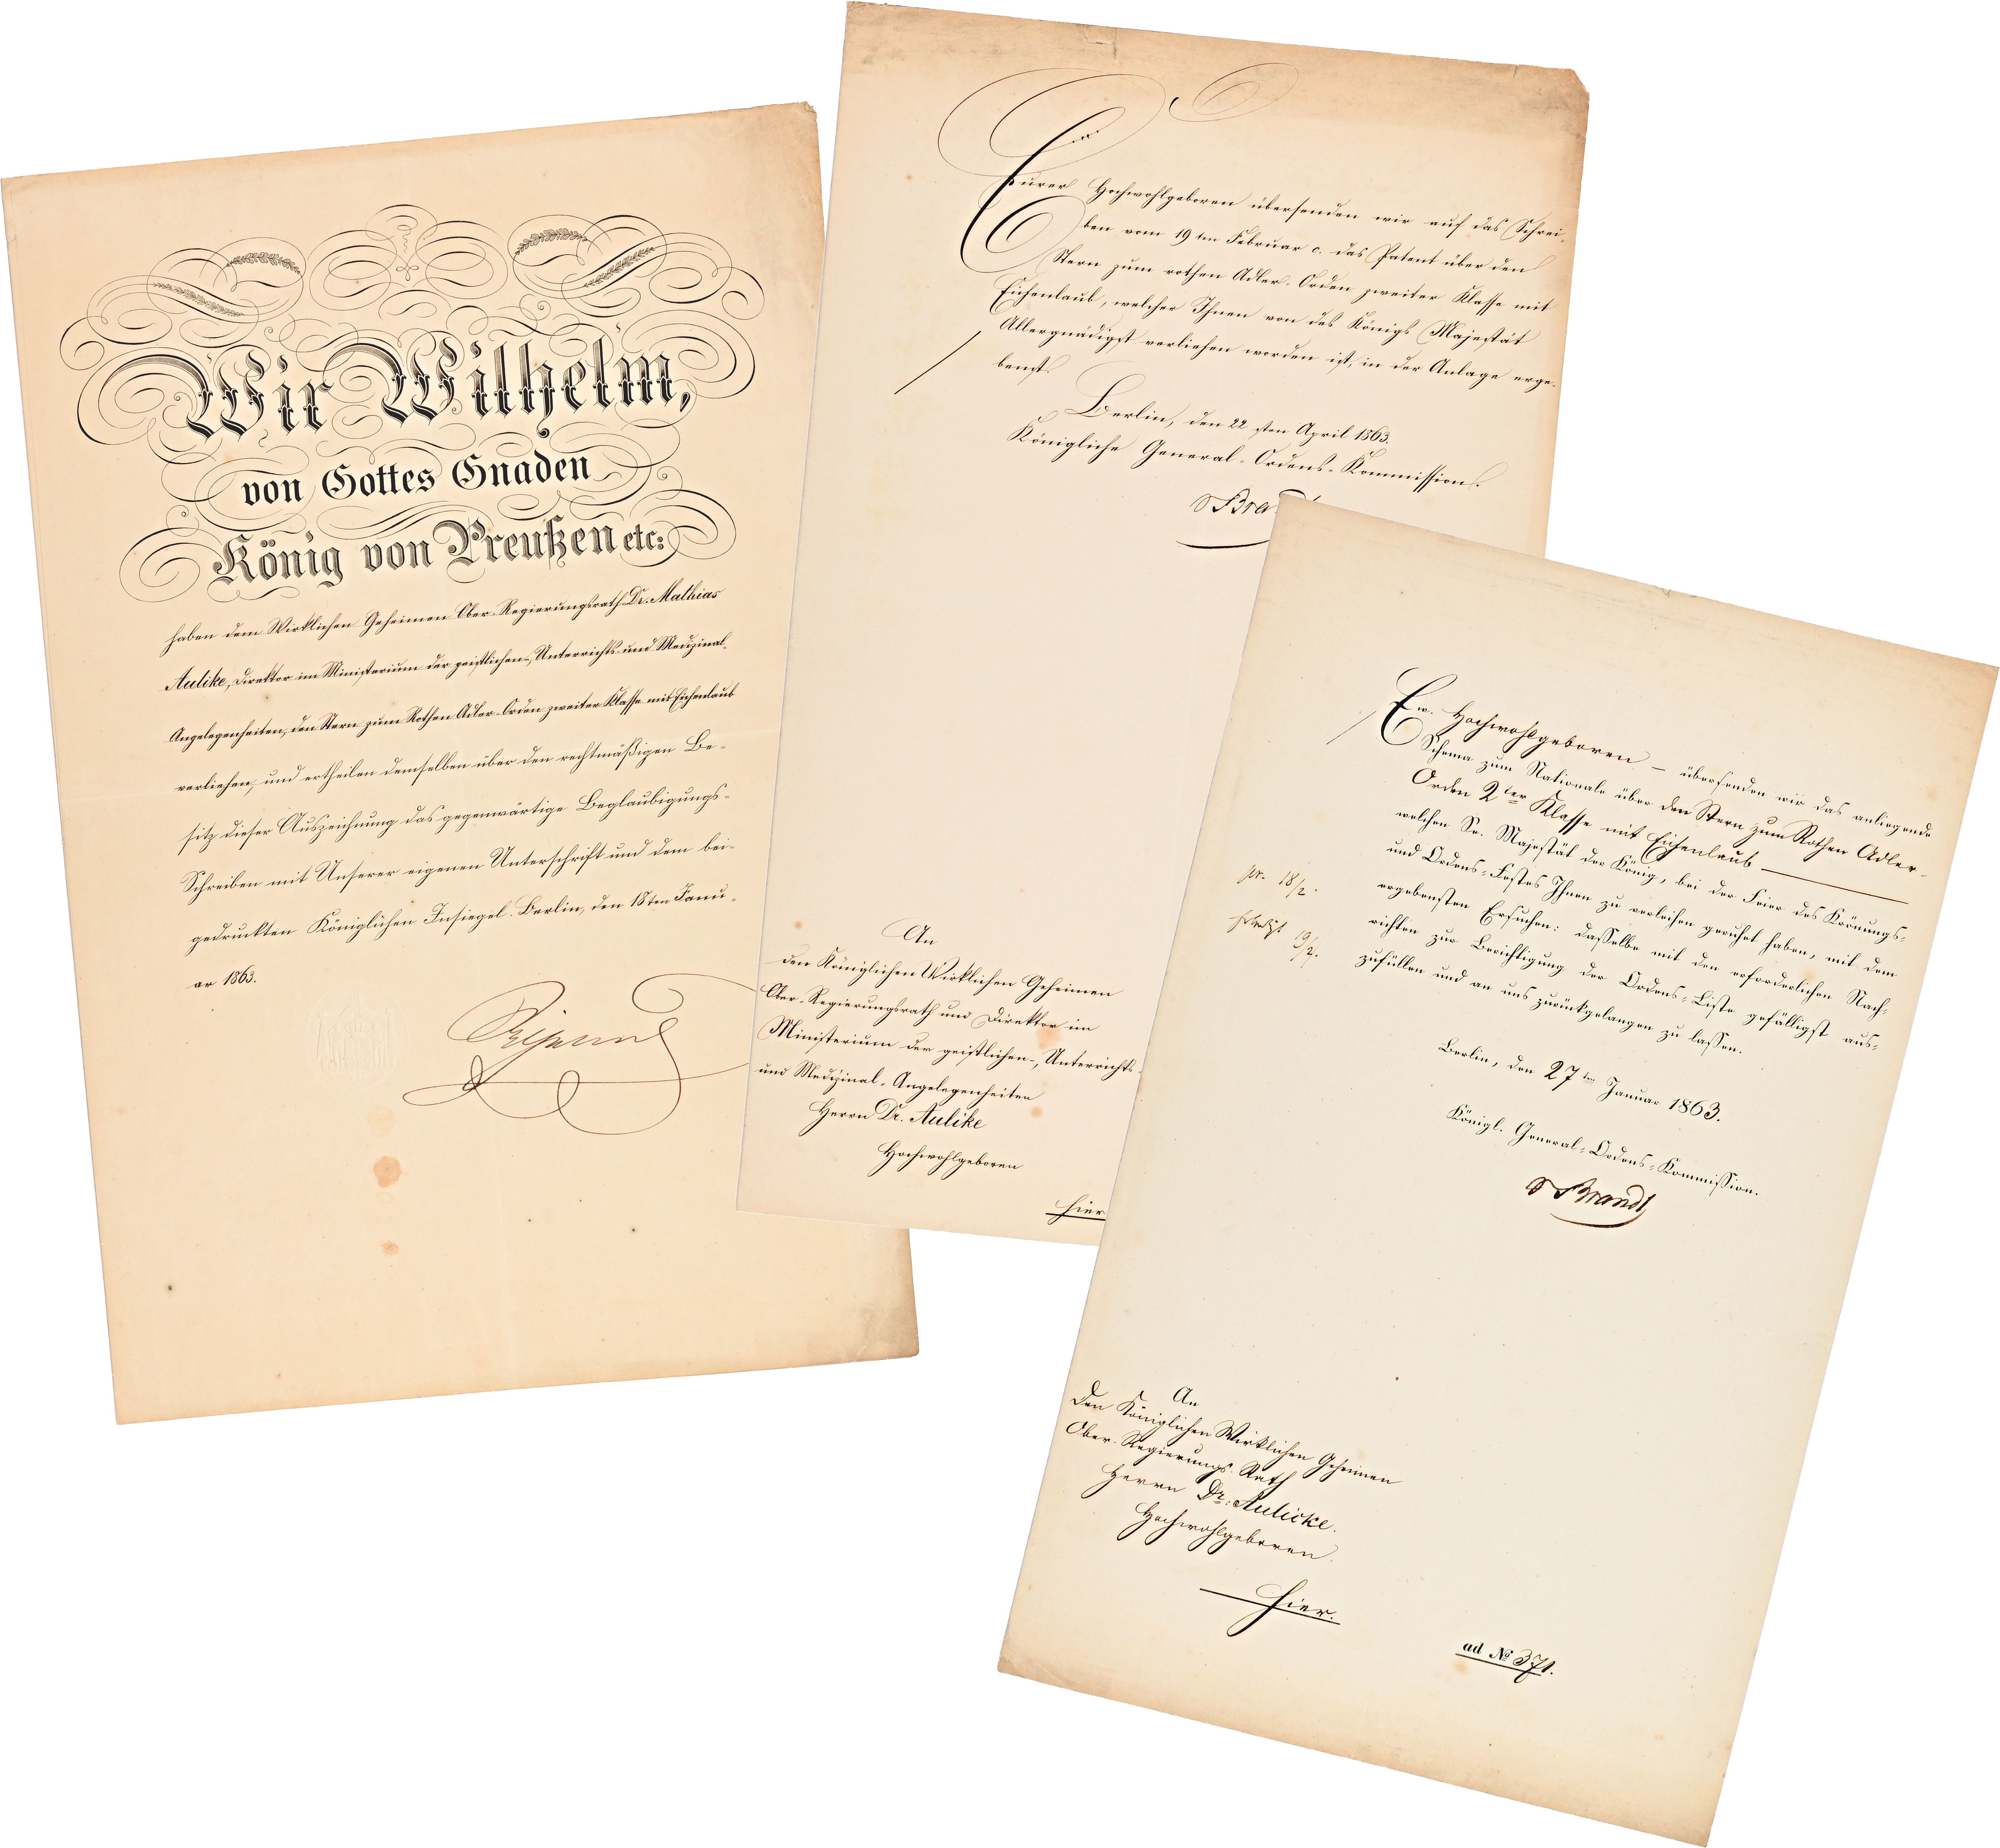 Wir Wilhelm,
von Gottes Gnaden
König von Preußen etc:
haben dem Wirklichen Geheimen Ober-Regierungsrath Dr. Mathias
Aulike, Direktor im Ministerium der geistlichen-, Unterrichts- und Medizinal-
Angelegenheiten, den Stern zum Rothen Adler-Orden zweiter Klasse mit Eichenlaub
verliehen, und ertheilen demselben über den rechtmäßigen Be-
sitz dieser Auszeichnung das gegenwärtige Beglaubigungs-
Schreiben mit Unserer eigenen Unterschrift und dem bei-
gedruckten Königlichen Insiegel. Berlin, den 18ten Janu-
ar 1863.
Eurer Hochwohlgeboren übersenden wir auf das Schrei-
ben vom 19ten Februar c. das Patent über den
Stern zum rothen Adler-Orden zweiter Klasse mit
Eichenlaub, welcher Ihnen von des Königs Majestät
Allergnädigst verliehen worden ist, in der Anlage erge-
benst.
Berlin, den 22sten April 1863.
Königliche General-Ordens-Kommission.
An
den Königlichen Wirklichen Geheimen
Ober-Regierungsrath und Direktor im
Ministerium der geistlichen-, Unterrichts-
und Medizinal-Angelegenheiten
Herrn Dr. Aulike
Hochwohlgeboren
hier
Ew. Hochwohlgeboren – übersenden wir das anliegende
Schema zum Nationale über den Stern zum Rothen Adler-
Orden 2ter Klasse mit Eichenlaub
welchen Se. Majestät der König, bei der Feier des Krönungs-
und Ordens-Festes Ihnen zu verleihen geruhet haben, mit dem
ergebensten Ersuchen: dasselbe mit den erforderlichen Nach-
richten zur Berichtigung der Ordens-Liste gefälligst aus-
zufüllen und an uns zurückgelangen zu lassen.
pr. 18/2.
19/2.
Berlin, den 27ten Januar 1863.
Königl. General-Ordens-Kommission.
v Brandt
An
den Königlichen Wirklichen Geheimen
Ober-Regierungs-Rath
Herrn Dr. Aulicke.
Hochwohlgeboren.
hier.
ad № 371.